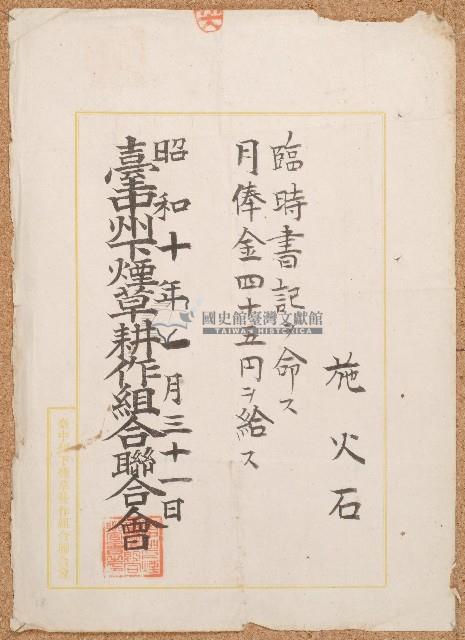 施火石
臨時書記ヲ命ス
月俸金四十五円ヲ給ス
昭和十年七月三十一日
臺中州下煙草耕作組合聯合會
臺中州下煙草耕作組合聯合會
國史館臺灣文獻館
TAIWAN HISTORICA